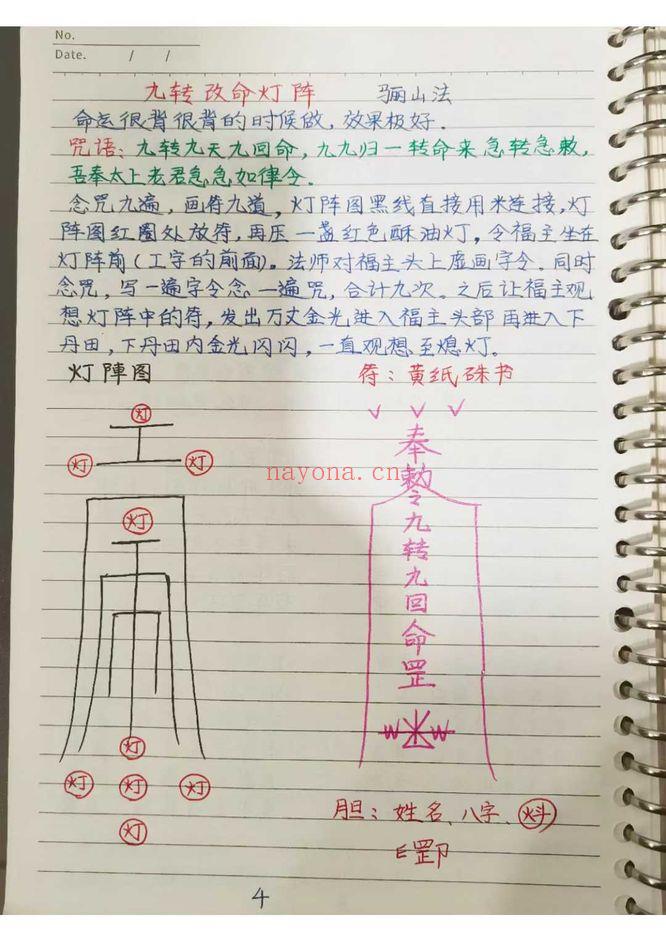 No.
Date. / /
九转改命灯阵 骊山法
命运很背很背的时候做，效果极好．
咒语：九转九天九回命，九九归一转命来急转急敕，
吾奉太上老君急急如律令．
念咒九遍，画符九道，灯阵图黑线直接用米连接，灯
阵图红圈处放符，再压一盏红色酥油灯，令福主坐在
灯阵前（工字的前面）。法师对福主头上虚画字令．同时
念咒，写一遍字令念一遍咒，合计九次．之后让福主观
想灯阵中的符，发出万丈金光进入福主头部再进入下
丹田，下丹田内金光闪闪，一直观想至熄灯。
灯陣图
符：黄纸硃书
灯
灯 灯
灯
灯
灯 灯 灯
灯
奉
敕
令
九
转
九
回
命
罡
w w
胆：姓名、八字、
nayona.cn
4